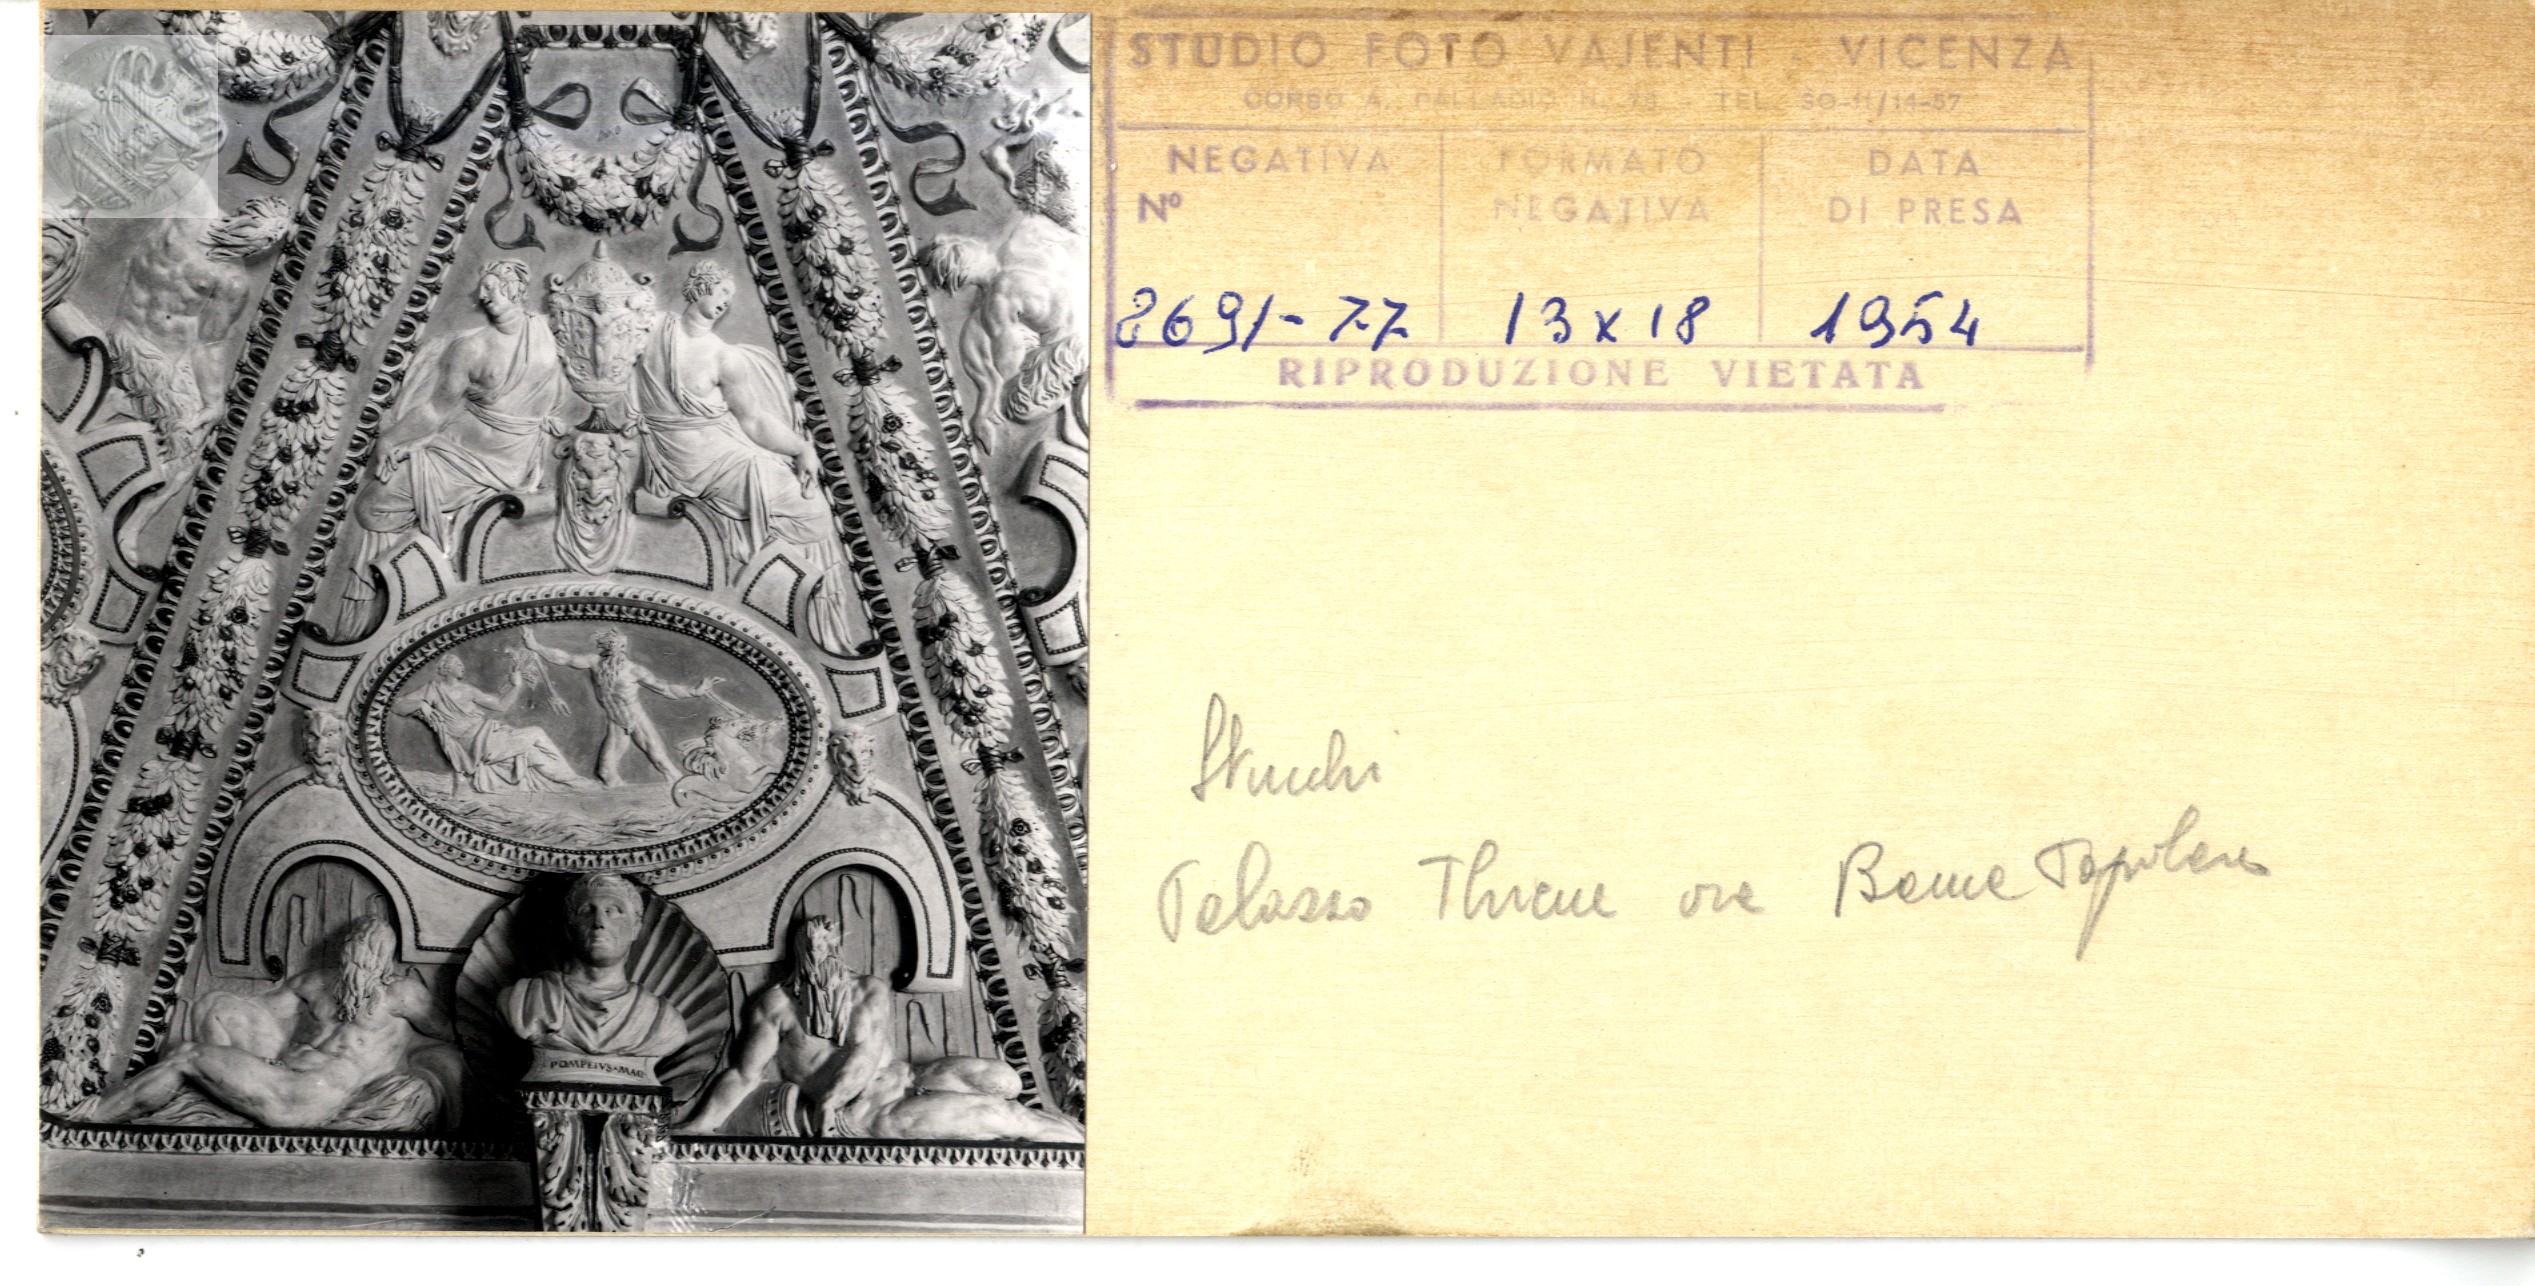 STUDIO FOTO VAJENTI - VICENZA
CORSO A. PALLADIO N. TEL. 50-11/14-57
NEGATIVA
Nº
FORMATO
NEGATIVA
DATA
DI PRESA
2691-77 13x18 1954
RIPRODUZIONE VIETATA
Stucchi
Palazzo Thiene ora Banca Popolare
POMPEIVS·MAG